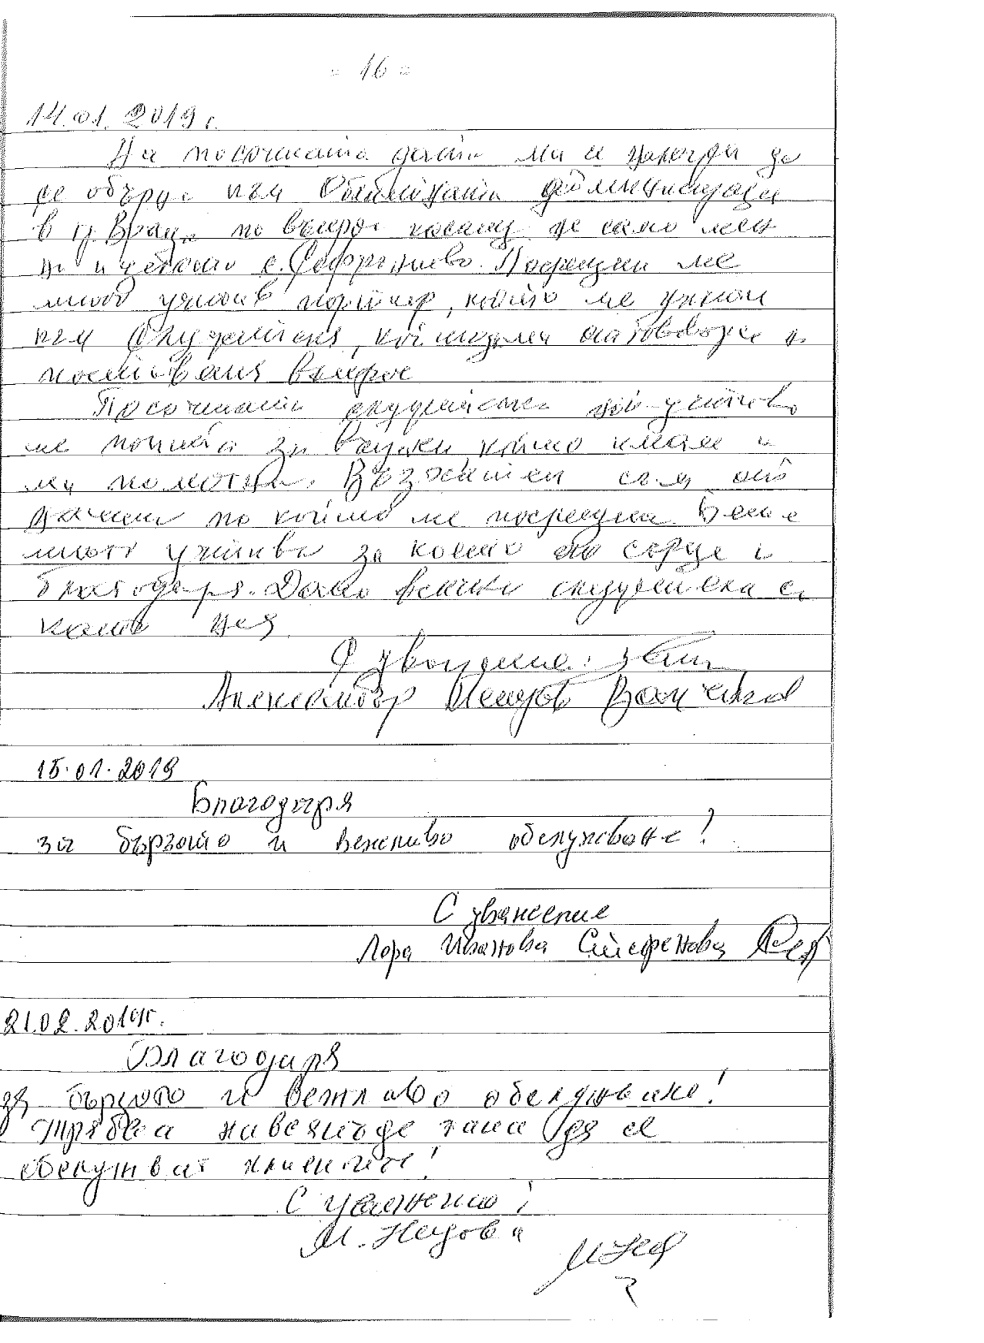 - 16 -
14.01.2019 г.
На посочената дата ми се наложи да
се обърна към Общинската администрация
в гр. Враца по въпрос касаещ не само мен
но и цялото с. Софрониево. Посрещна ме
много учтив портиер, който ме упъти
към служителя, който отговаря за
поставения въпрос
Посочената служителка най-учтиво
ме попита за всичко, което имам и
ми помогна. Възхитен съм от
начина по който ме посрещна. Беше
много учтива за което от сърце
благодаря. Дано всички служители са
като нея
С уважение:
Александър Пенчов
15.01.2019
Благодаря
за бързото и вежливо обслужване!
С уважение
Лора Иванова Стефенова
21.02.2019г.
Благодаря
за бързото и вежливо обслужване!
Трябва навсякъде така да се
обслужват клиентите!
С уважение!
М. Нецова